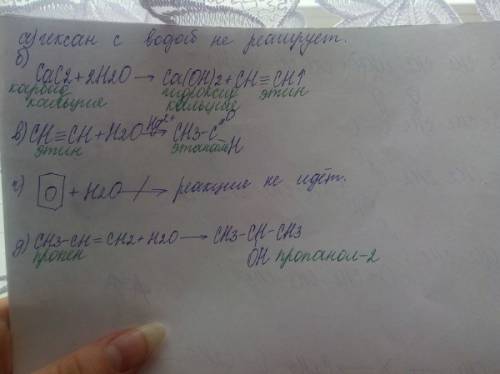 а) гексан с водой не реагирует.
б)
CaC2 + 2H2O → Ca(OH)2 + CH≡CH↑
карбид кальция гидроксид кальция этин
в) CH≡CH + H2O Hg2+→ CH3-C=O -H
этин этаналь
г) + H2O → реакция не идёт.
д) CH3-CH=CH2 + H2O → CH3-CH-CH3
пропен OH пропанол-2